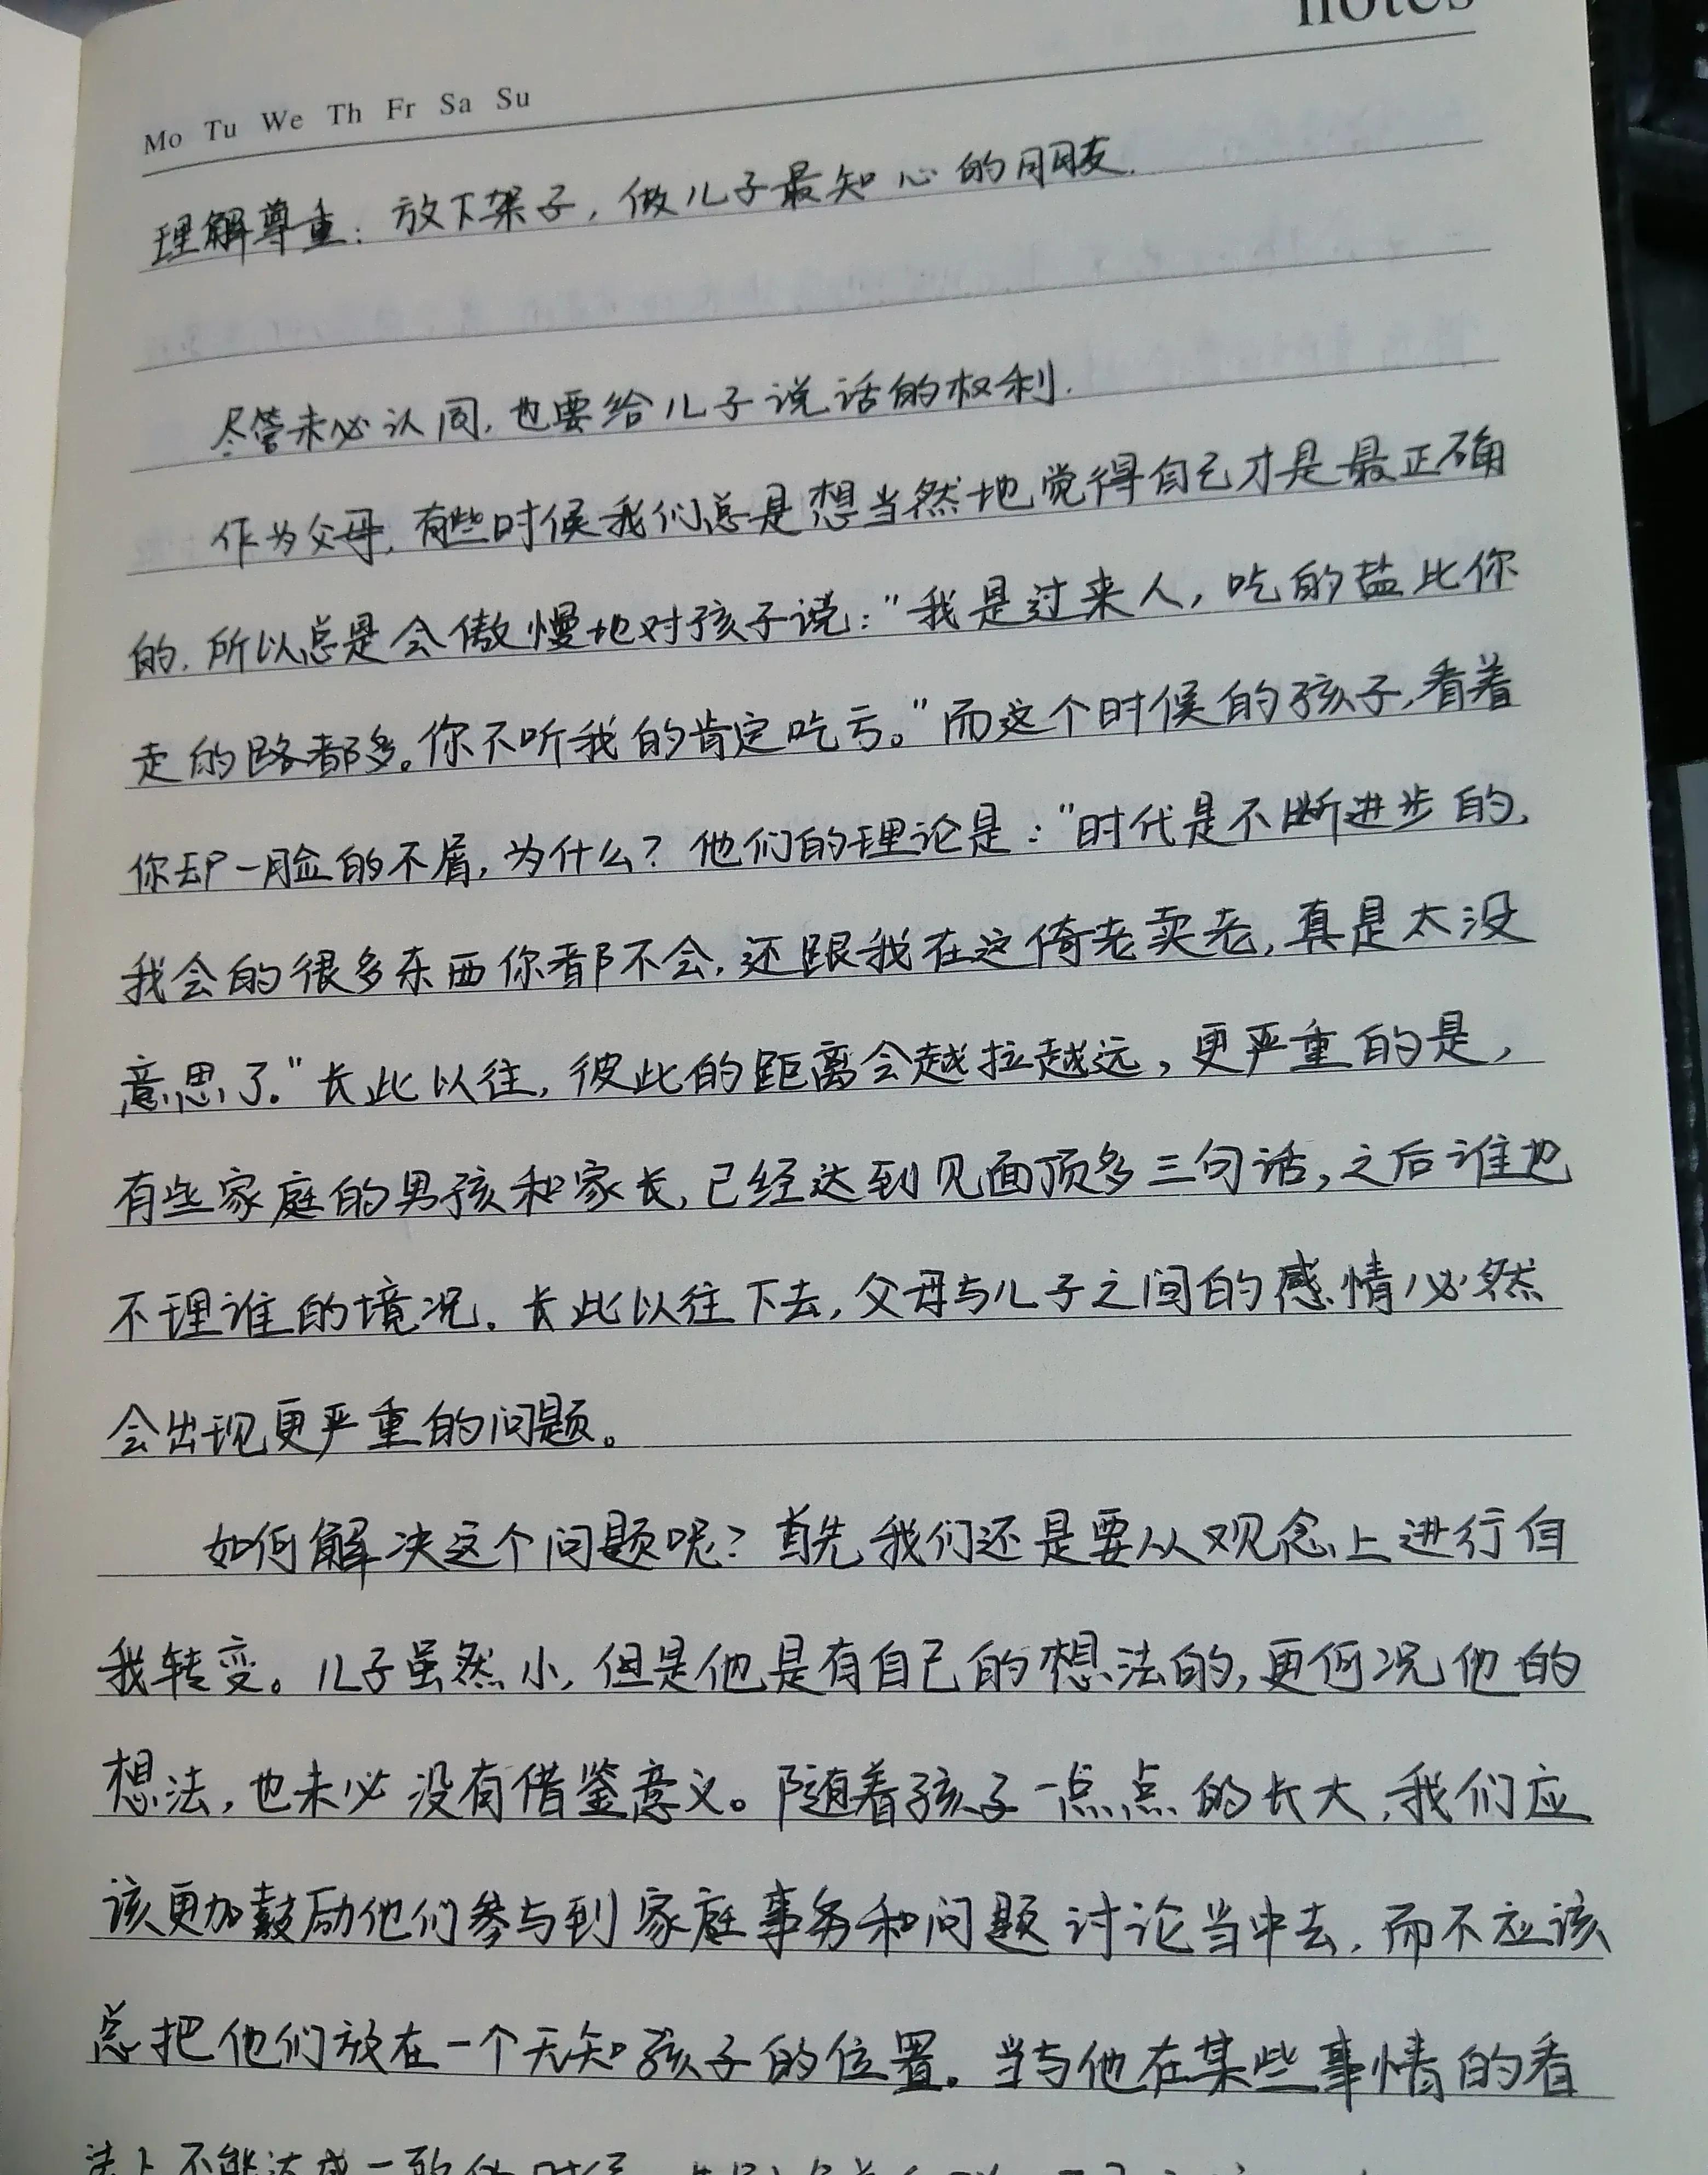 notes
Mo Tu We Th Fr Sa Su
理解尊重：放下架子，做儿子最知心的朋友.
尽管未必认同，也要给儿子说话的权利.
作为父母，有些时候我们总是想当然地觉得自己才是最正确
的，所以总是会傲慢地对孩子说："我是过来人，吃的盐比你
走的路都多。你不听我的肯定吃亏。"而这个时候的孩子，看着
你却一脸的不屑，为什么？他们的理论是："时代是不断进步的，
我会的很多东西你都不会，还跟我在这倚老卖老，真是太没
意思了。"长此以往，彼此的距离会越拉越远，更严重的是，
有些家庭的男孩和家长，已经达到见面顶多三句话，之后谁也
不理谁的境况。长此以往下去，父母与儿子之间的感情必然
会出现更严重的问题。
如何解决这个问题呢？首先我们还是要从观念上进行自
我转变。儿子虽然小，但是他是有自己的想法的，更何况他的
想法，也未必没有借鉴意义。随着孩子一点点的长大，我们应
该更加鼓励他们参与到家庭事务和问题讨论当中去，而不应该
总把他们放在一个无知孩子的位置。当与他在某些事情的看
法上不能达成一致的时候